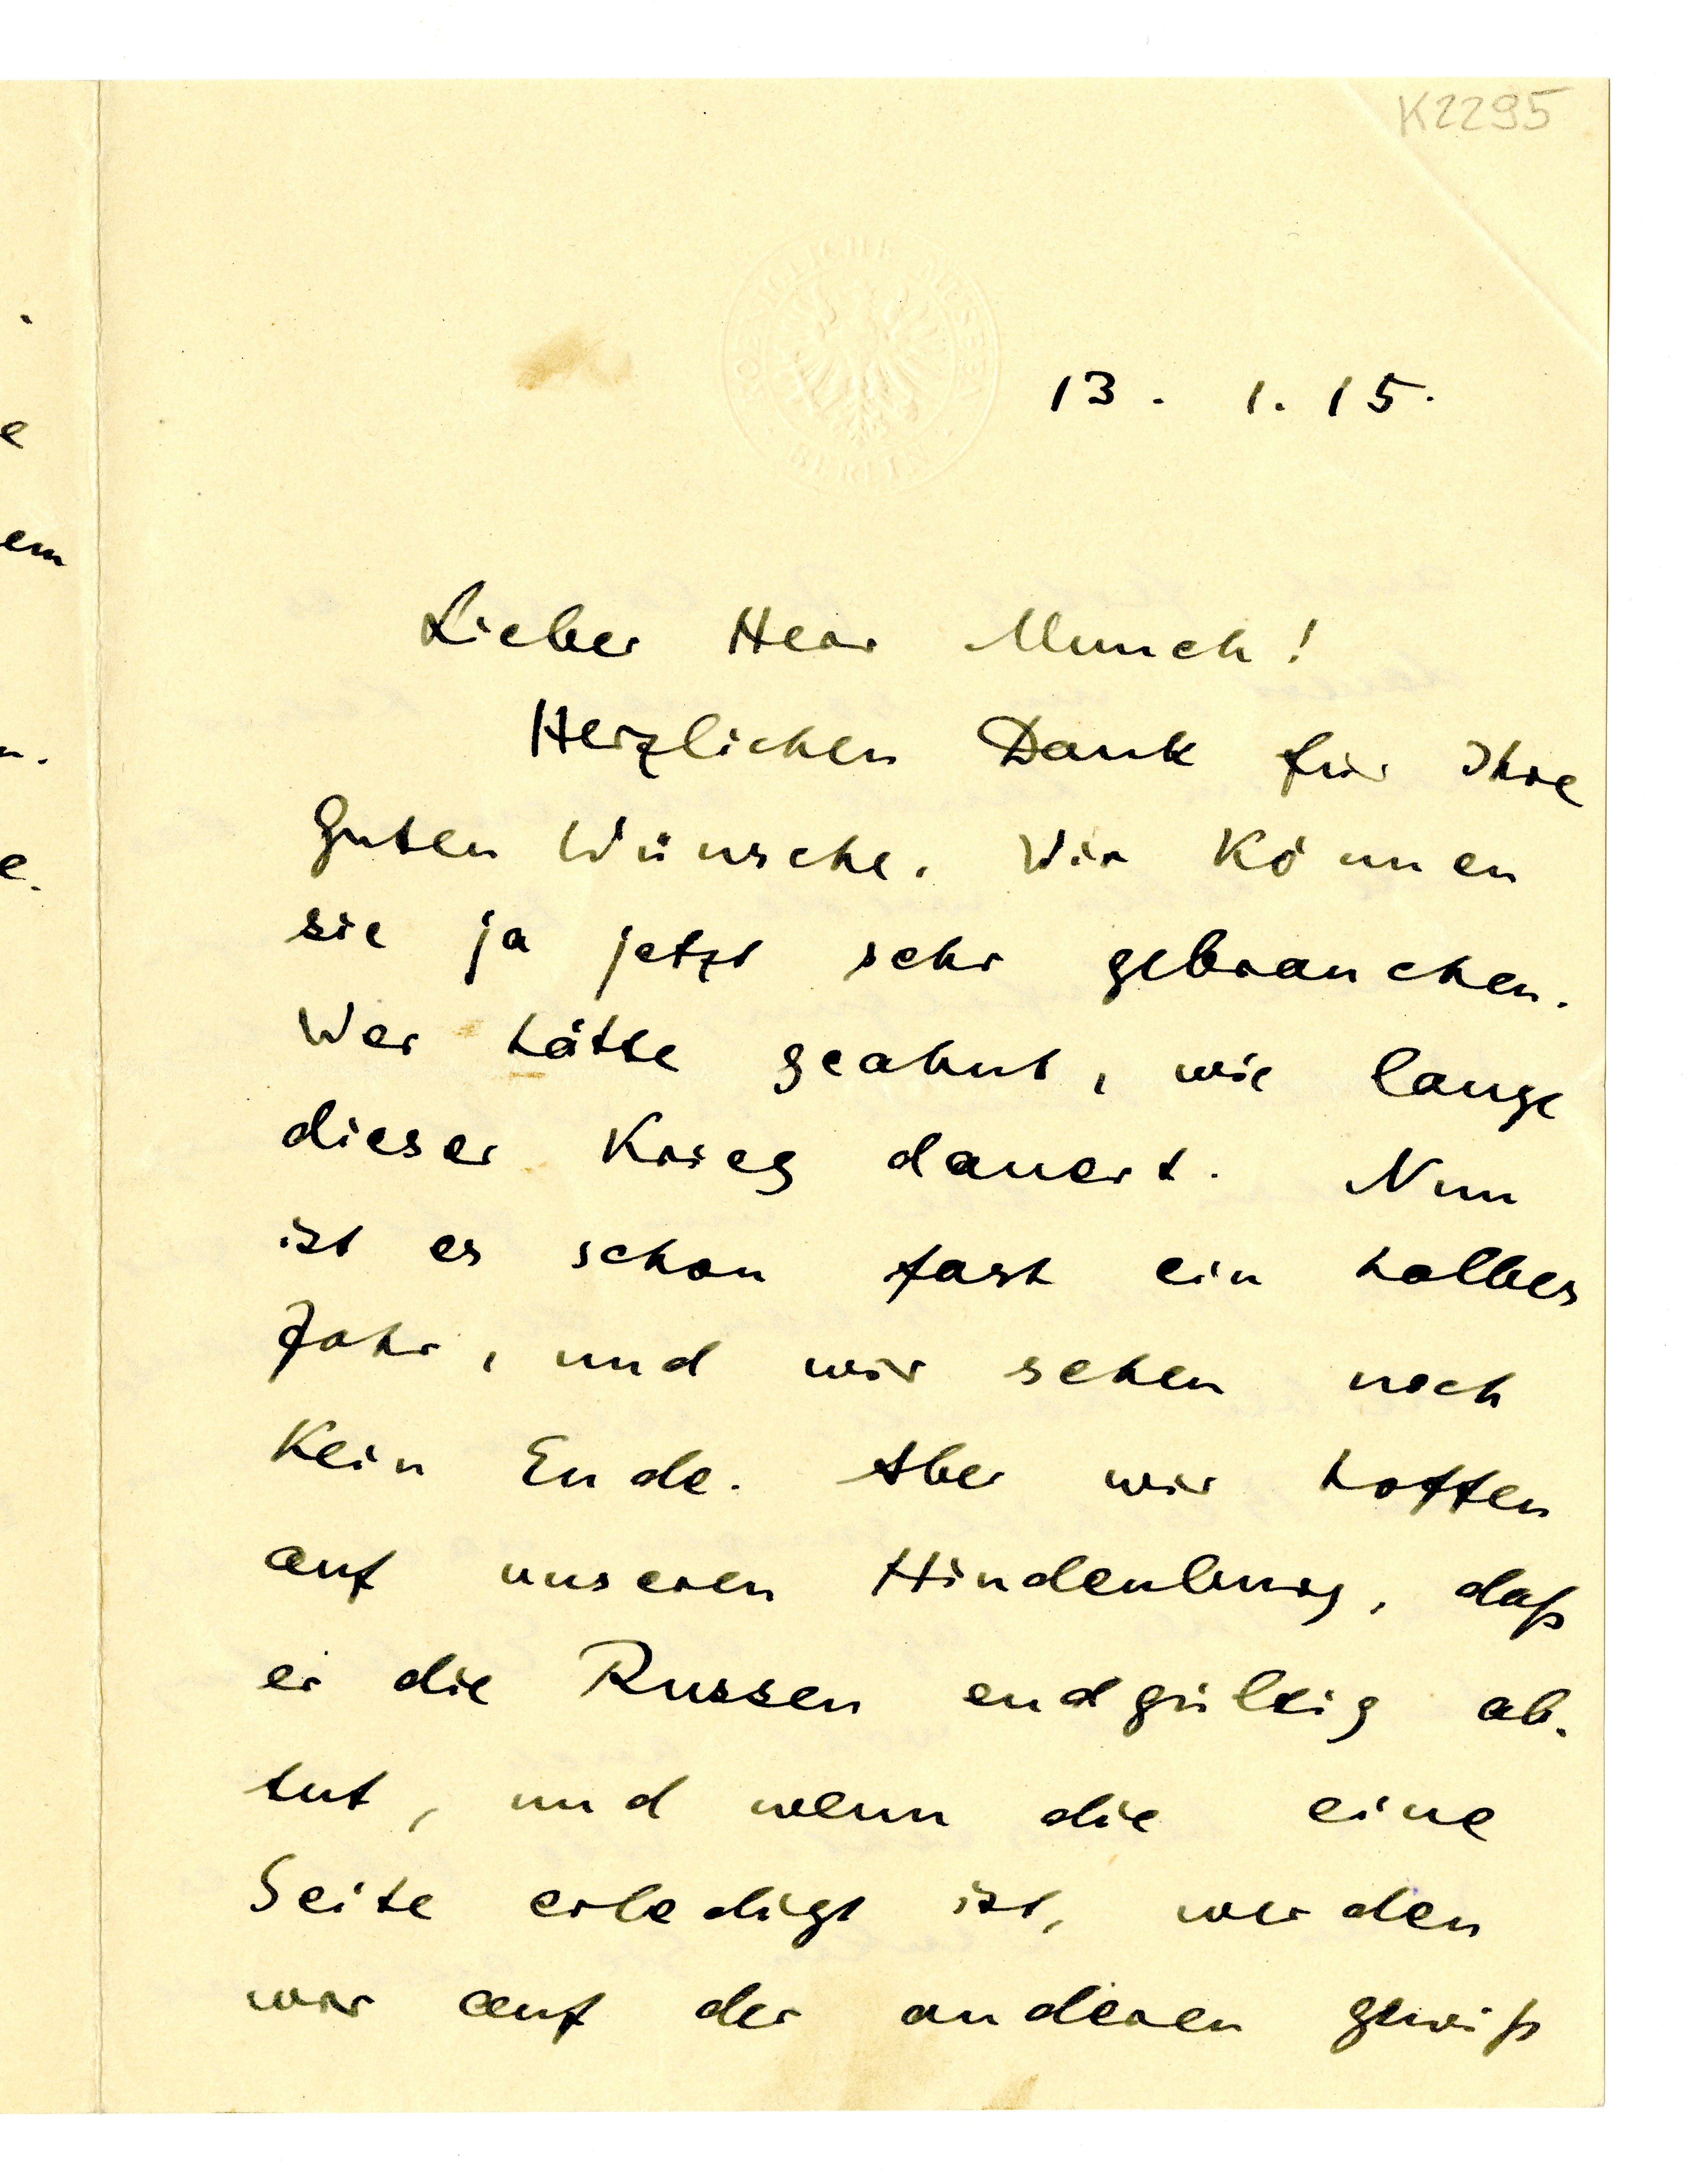 K2295
KOENIGLICHE MUSEEN
BERLIN
13. 1. 15.
Lieber Herr Munch!
Herzlichen Dank für Ihre
guten Wünsche. Wir können
sie ja jetzt sehr gebrauchen.
Wer hätte geahnt, wie lange
dieser Krieg dauert. Nun
ist es schon fast ein halbes
Jahr, und wir sehen noch
kein Ende. Aber wir hoffen
auf unseren Hindenburg, daß
er die Russen endgültig ab-
tut, und wenn die eine
Seite erledigt ist, werden
wir auf der anderen gewiß
e
em
n.
e.